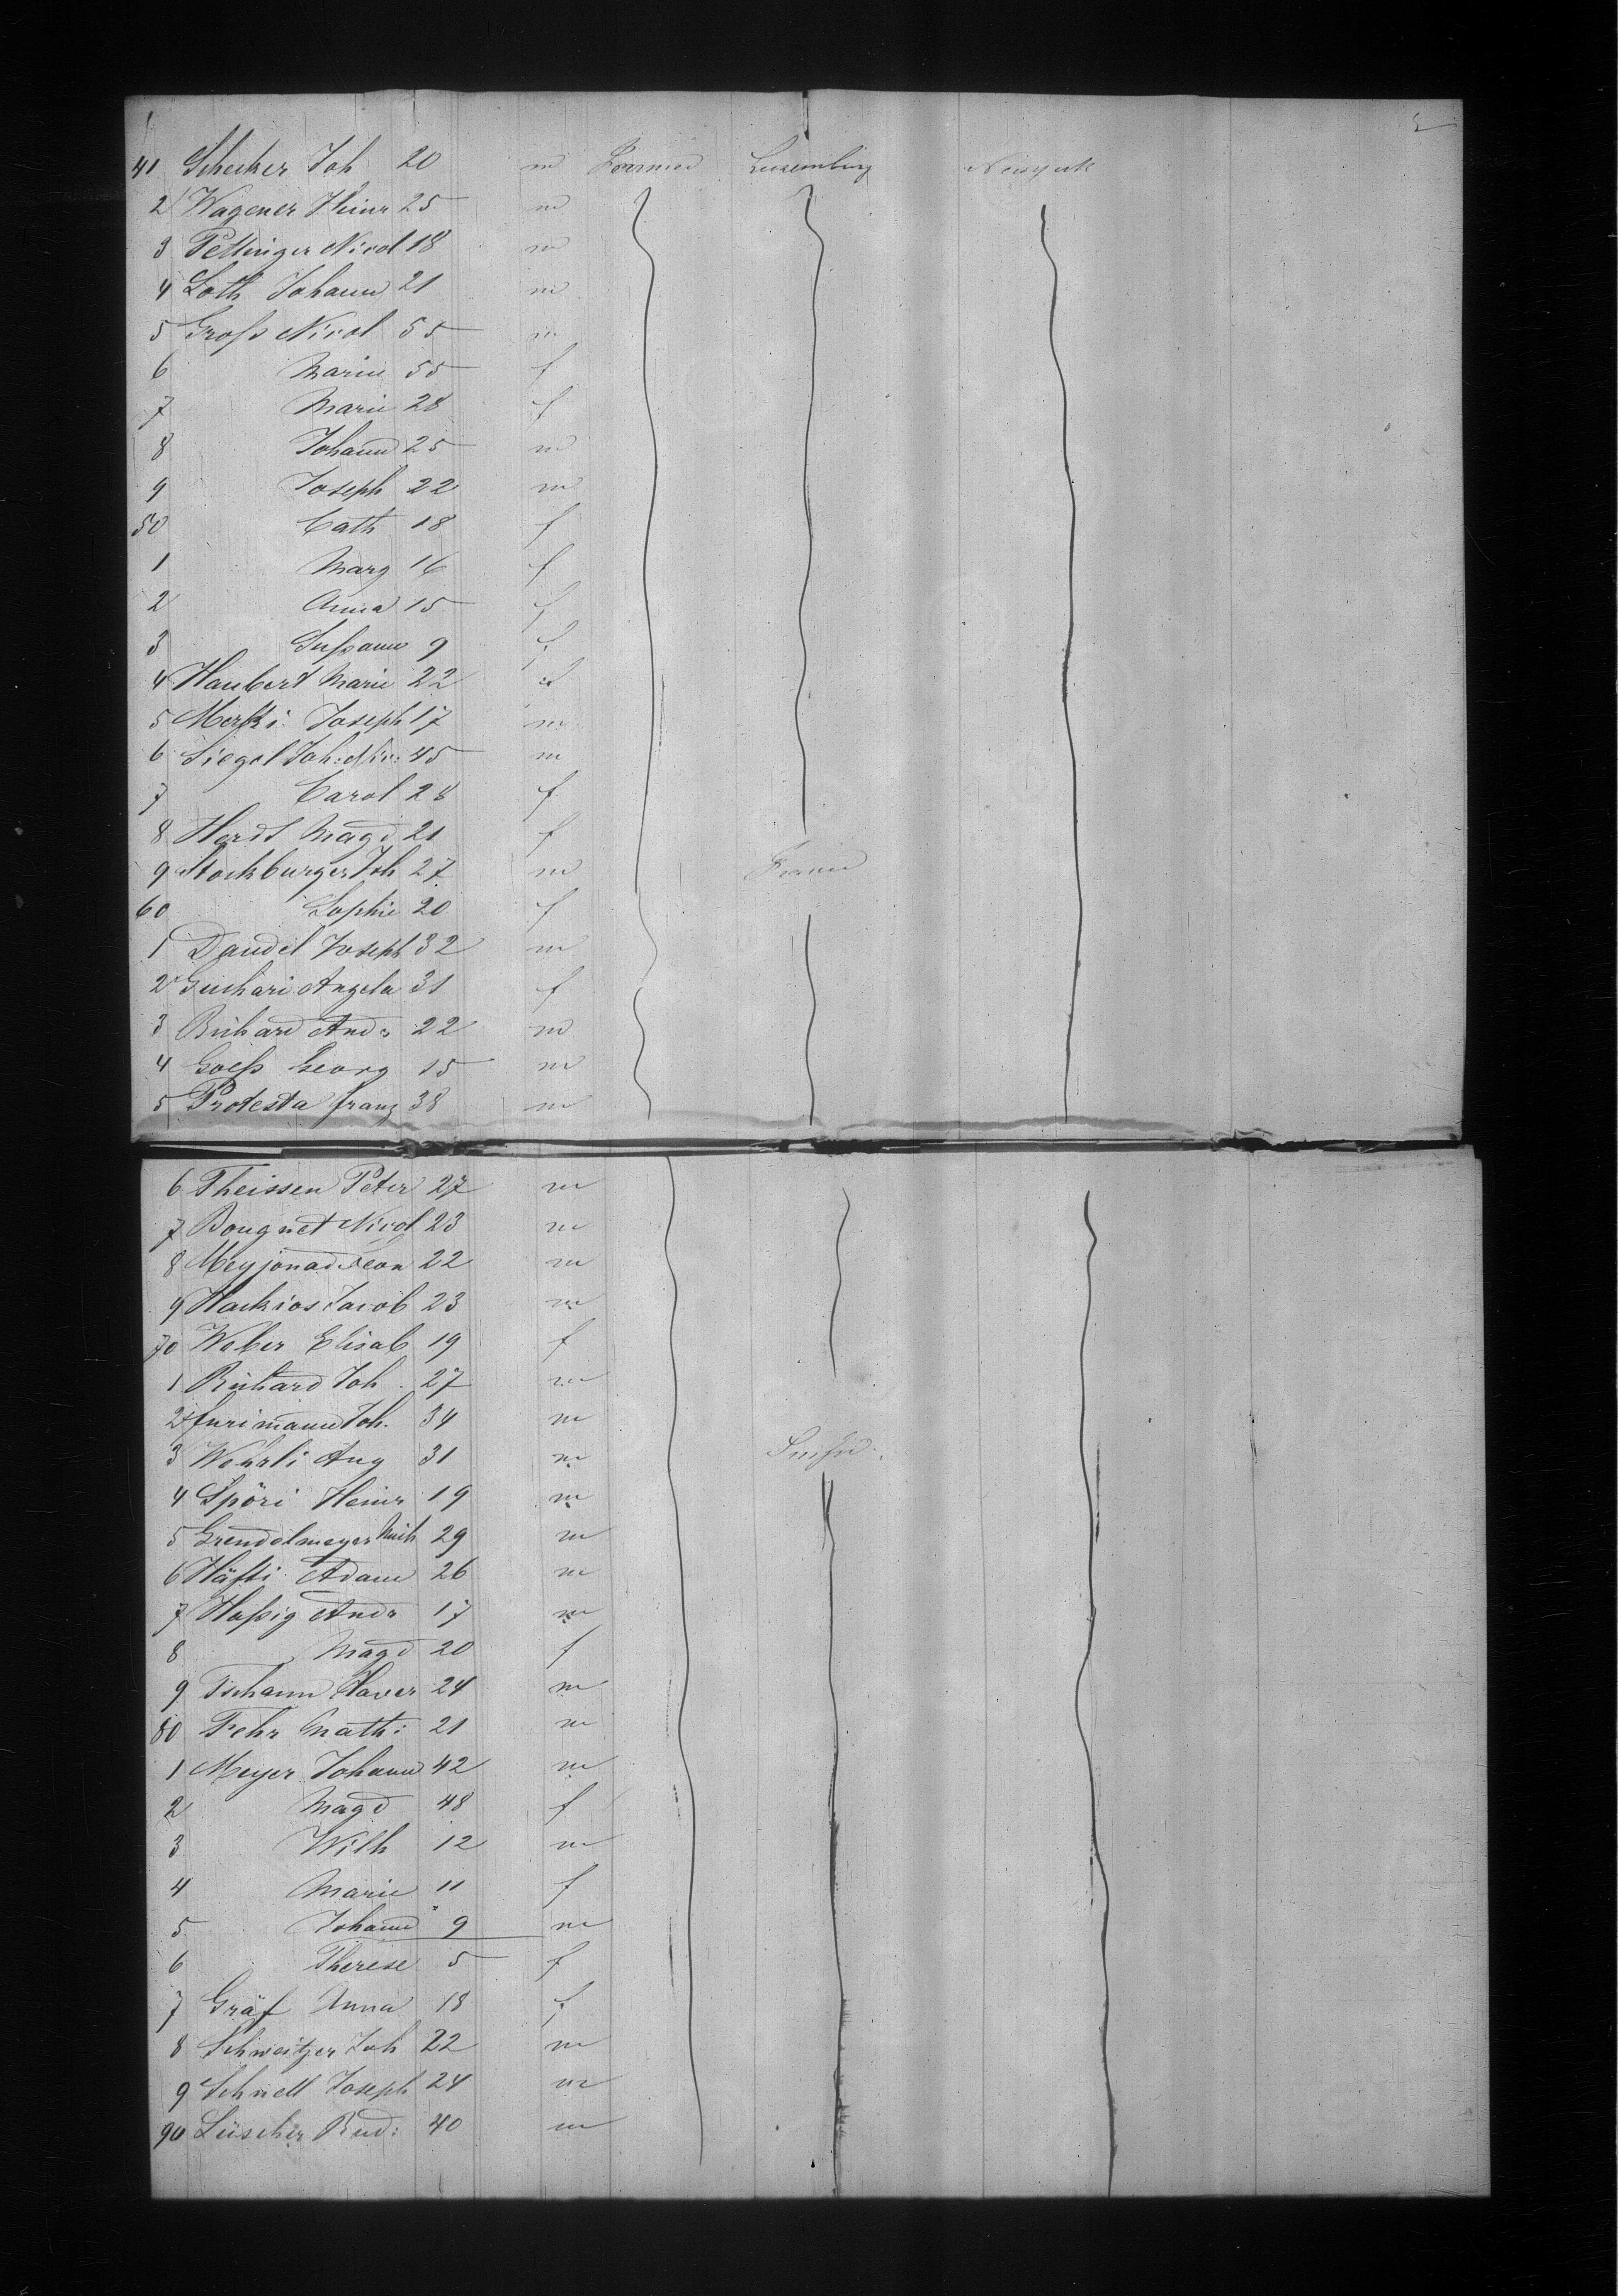 41 Schecker Joh 20 m Luxemburg Newyork
2 Wagener Heinr 25 m
3 Pettinger Nicol 18 m
4 Loth Johann 21 m
5 Groß Nicol 55 m
6 Marie 55 f
7 Marie 28 f
8 Johann 25 m
9 Joseph 22 m
50 Cath 18 f
1 Marg 16 f
2 Anna 15 f
3 Sußann 9 f
4 Haubert Marie 22 f
5 Merki Joseph 17 m
6 Siegel Joh: 45 m
7 Carol 28 f
8 Herdt Magd 21 f
9 Stockburger Joh 27 m France
60 Sophie 20 f
1 Daudel Joseph 32 m
2 Angela 31 f
3 Richard Andr 22 m
4 Goeß Georg 15 m
5 Protesta franz 38 m
6 Theissen Peter 27 m
7 Bougnet Nicol 23 m
8 Leon 22 m
9 Hackios Jacob 23 m
70 Weber Elisab 19 f
1 Richard Joh 27 m
2 Joh. 34 m
3 Wehrli Aug 31 m
4 Spöri Heinr 19 m
5 Grendelmeyer Mich 29 m
6 Häfti Adam 26 m
7 Haßig Andr 17 m
8 Magd 20 f
9 Tschann Xaver 24 m
80 Fehr Math: 21 m
1 Meyer Johann 42 m
2 Magd 48 f
3 Wilh 12 m
4 Marie 11 f
5 Johann 9 m
6 Therese 5 f
7 Gräf Anna 18 f
8 Schweitzer Joh 22 m
9 Schnell Joseph 24 m
90 Lüscher Rud: 40 m